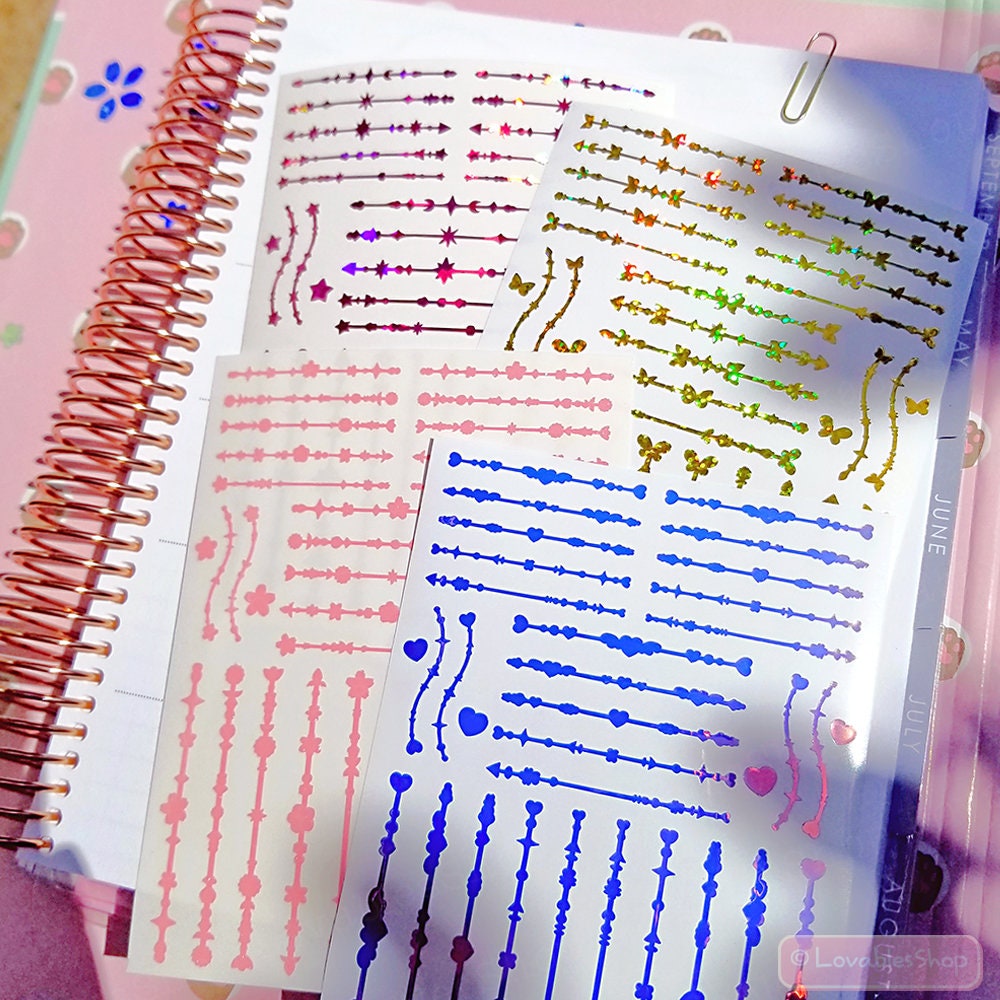 SEPTEMBER
MAY
JUNE
JULY
AUGUST
© LovabiesShop